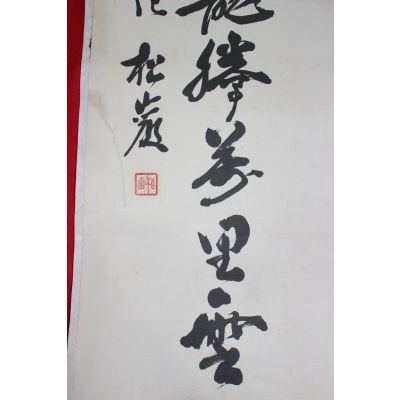 龍騰萬里雲
松巖